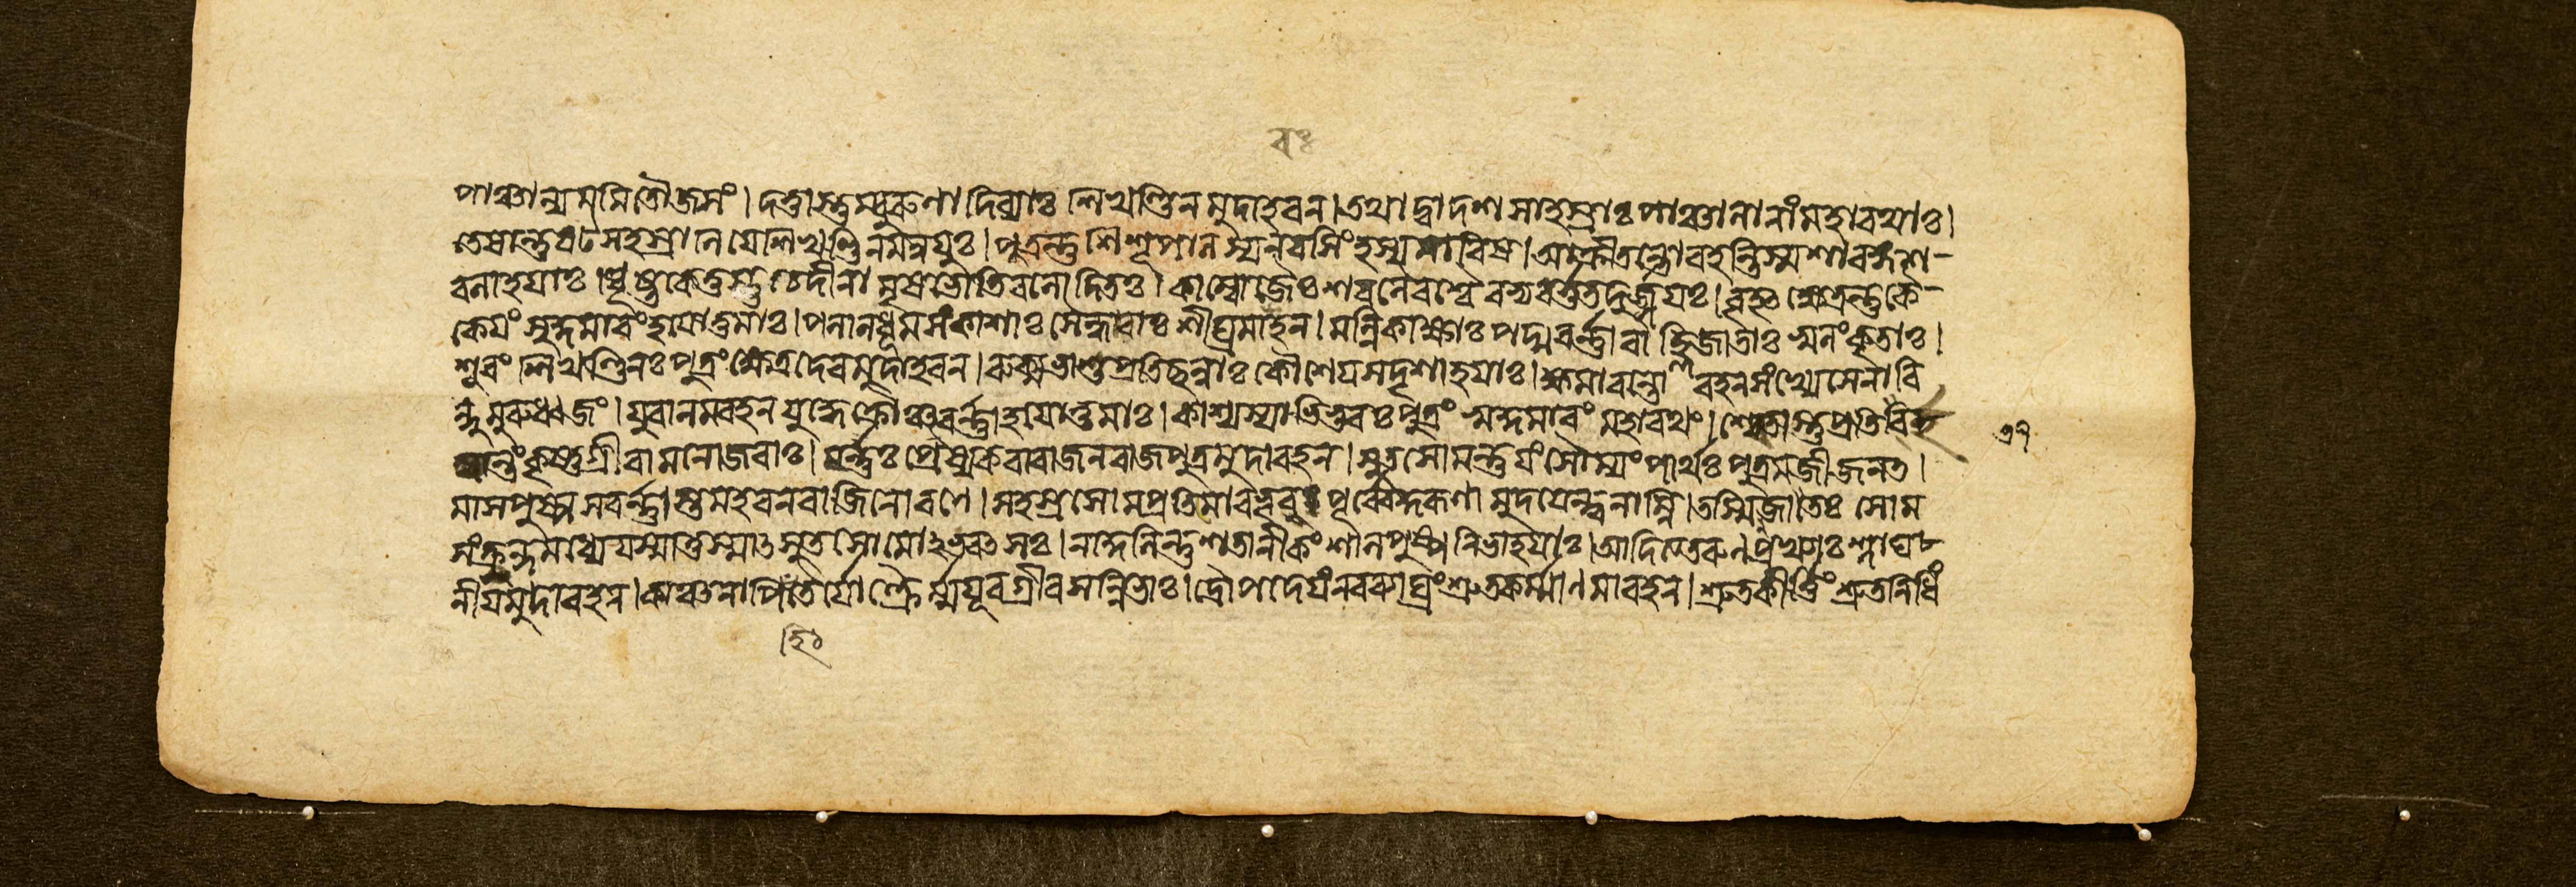 পাঞ্চাল্যমমিতৌজসং। দত্তাস্তুম্বুরুণা দিব্যাঃ শিখণ্ডিনমুদাহরন। তথা দ্বাদশসাহস্রাঃ পাঞ্চালানাং মহারথাঃ।
তেষান্তু ষট্সহস্রাণি যে শিখণ্ডিনমন্বযুঃ। পুত্রন্তু শিশুপালস্য নরসিংহস্য মারিষ। আক্রীডন্তো বহন্তি স্ম শারঙ্গশ-
বলাহযাঃ। ধৃষ্টকেতুস্তু চেদীনামৃষভোতিবলোদিতঃ। কাম্বোজৈঃ শবলৈরশ্বৈরভ্যবর্ত্তত দুর্জ্জযঃ। বৃহৎক্ষত্রন্তু কৈ-
কেযং সুকুমারং হযোত্তমাঃ। পলালধূমসংকাশাঃ সৈন্ধবাঃ শীঘ্রমাবহন। মল্লিকাক্ষাঃ পদ্মবর্ণ্ণা বাহ্লিজাতাঃ স্বলংকৃতাঃ।
শূরং শিখণ্ডিনঃ পুত্রং ক্ষত্রদেবমুদাহরন। রুক্মভাণ্ডপ্রতিচ্ছন্নাঃ কৌশেযসদৃশা হযাঃ। ক্ষমাবন্তোবহন সংখ্যে সেনাবি
ন্দুমুরুধ্বজং। যুবানমবহন যুদ্ধে ক্রৌঞ্চবর্ণ্ণা হযোত্তমাঃ। কাশ্যস্যাভিভুবঃ পুত্রং সুকুমারং মহারথং। শ্বেতাস্তু প্রতিবি
ন্ধ্যন্তং কৃষ্ণগ্রীবা মনোজবাঃ। যন্তুঃ প্রেষ্যকরা রাজন রাজপুত্রমুদাবহন। সুতসোমন্তু যং সৌম্যং পার্থঃ পুত্রমজীজনত।
মাষপুষ্পসবর্ণ্ণাস্তমহরন বাজিনো রণে। সহস্রসোমপ্রতিমা বভূবুঃ পুরে কুরূণামুদযেন্দুনাম্নি। তস্মিঞ্জাতঃ সোম
সংক্রন্দমধ্যে যস্মাত্তস্মাৎ সুতসোমোঽভবৎ সঃ। নাকুলিন্তু শতানীকং শালপুষ্পনিভাহযাঃ। আদিত্যতরুণপ্রখ্যাঃ শ্লাঘ-
নীযমুদাবহন। কাঞ্চনাপিহিতৈর্যোক্ত্রৈর্মযূরগ্রীবসন্নিভাঃ। দ্রৌপদেযং নরব্যাঘ্রং শ্রুতকর্ম্মাণমাবহন। শ্রুতকীর্ত্তিং শ্রুতনিধিং
৭২